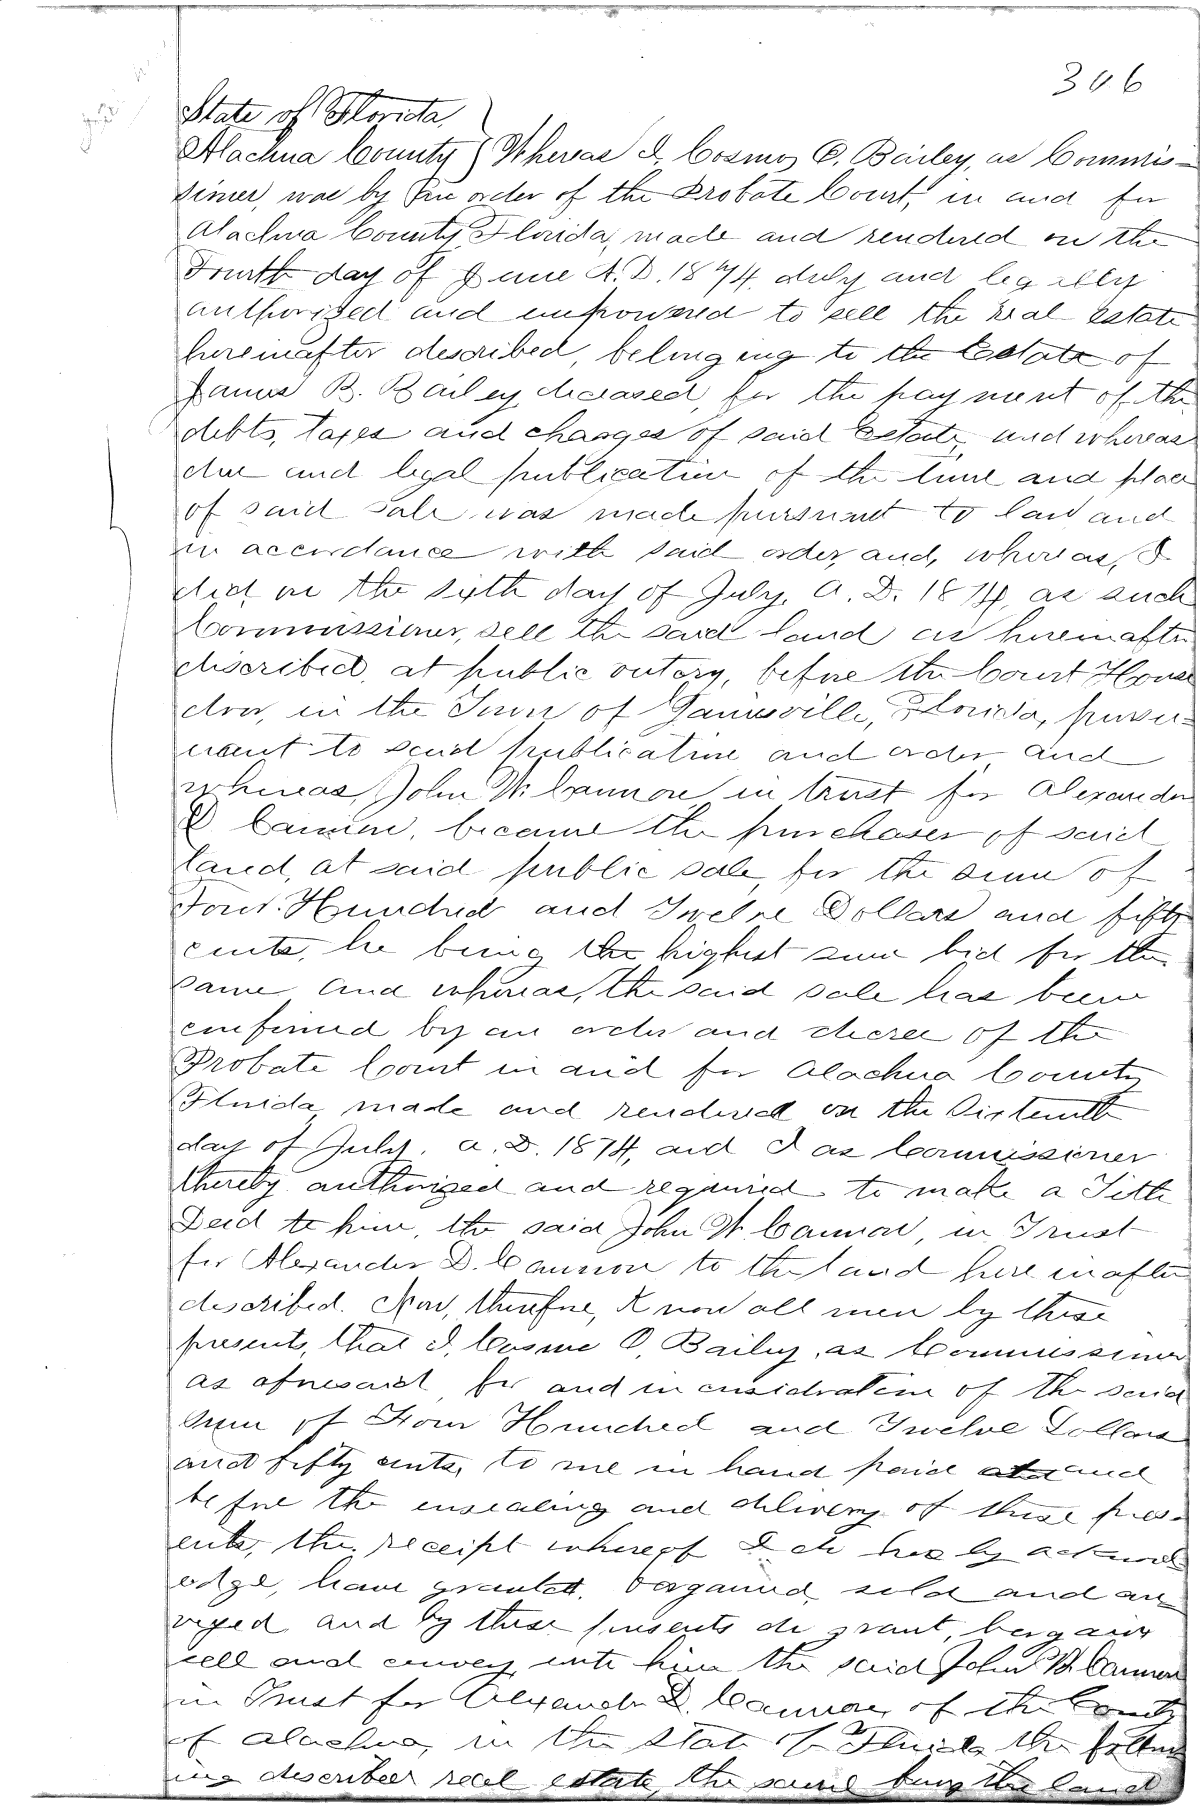 306
State of Florida,
Alachua County } Whereas I, Cosmo O. Bailey, as Commis-
sioner, was by an order of the Probate Court, in and for
Alachua County Florida, made and rendered on the
Fourth day of June A.D. 1874, duly and legally
authorized and empowered to sell the real estate
hereinafter described, belonging to the Estate of
James B. Bailey deceased, for the payment of the
debts, taxes and charges of said Estate, and whereas
due and legal publication of the time and place
of said sale was made pursuant to law and
in accordance with said order, and, whereas, I
did, on the sixth day of July, A.D. 1874, as such
Commissioner, sell the said land as hereinafter
discribed, at public outcry, before the Court House
door, in the Town of Gainesville, Florida, pursu-
uant to said publication and order, and
whereas, John W. Cannon, in trust for Alexander
D Cannon, became the purchaser of said
land, at said public sale, for the sum of
Four Hundred and Twelve Dollars and fifty
cents, he being the highest sum bid for the
same, and whereas, the said sale has been
confirmed by an order and decree of the
Probate Court in and for Alachua County
Florida made and rendered on the Sixteenth
day of July, A.D. 1874, and I as Commissioner
thereby authorized and required to make a Title
Deed to him, the said John W. Cannon, in Trust
for Alexander D. Cannon to the land hereinafter
described. Now, therefore, Know all men by these
presents, that I, Cosmo O. Bailey, as Commissioner
as aforesaid, for and in consideration of the said
sum of Four Hundred and Twelve Dollars
and fifty cents, to me in hand paid and
before the ensealing and delivery of these pres-
ents, the receipt whereof I do hereby acknowl-
edge, have granted, bargained, sold and con
veyed and by these presents do grant, bargain
sell and convey unto him the said John W. Cannon
in Trust for Alexander D. Cannon, of the County
of Alachua, in the State of Florida the follow
ing described real estate, the same being the land